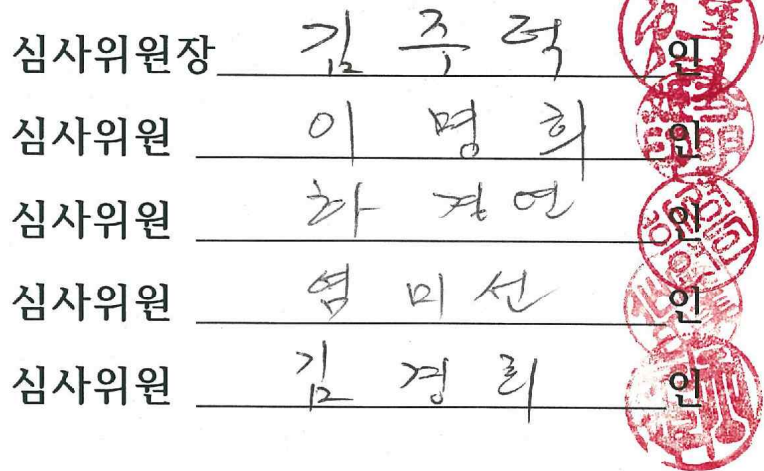 심사위원장 김 주 덕 인
심사위원 이 명 희 인
심사위원 차 경 연 인
심사위원 염 미 선 인
심사위원 김 경 희 인